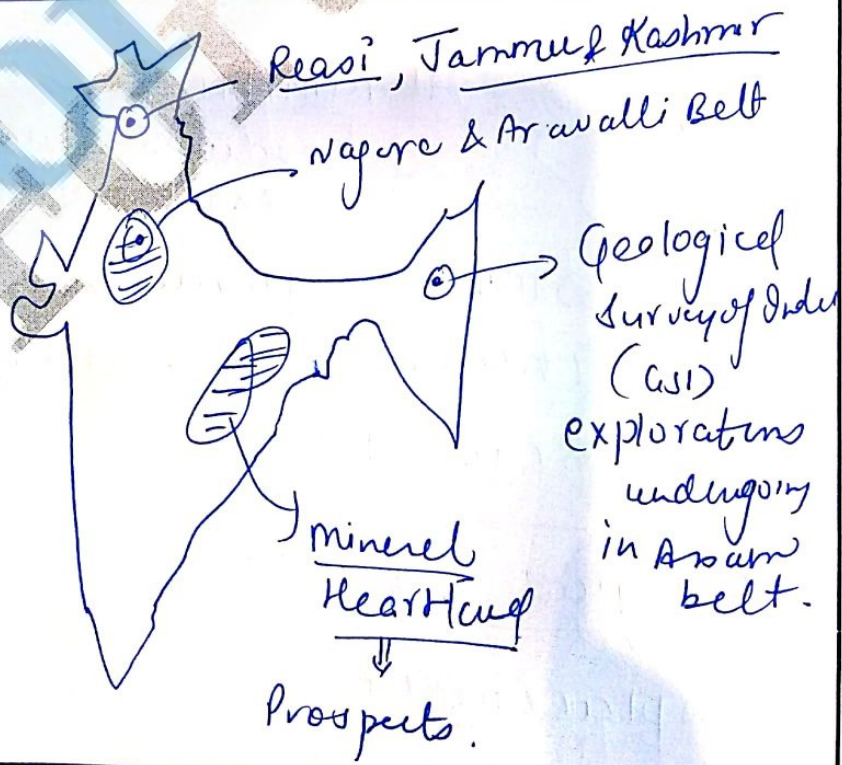 Reasi, Jammu & Kashmir
Nagore & Aravalli Belt
Geological
Survey of India
(GSI)
explorations
undergoing
in Assam
belt.
Mineral
Heartland
⇓
Prospects.